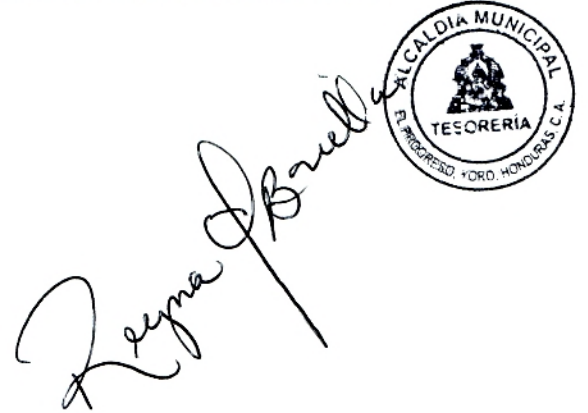 ALCALDIA MUNICIPAL
TESORERÍA
EL PROGRESO, YORO, HONDURAS, C.A.
Reyna